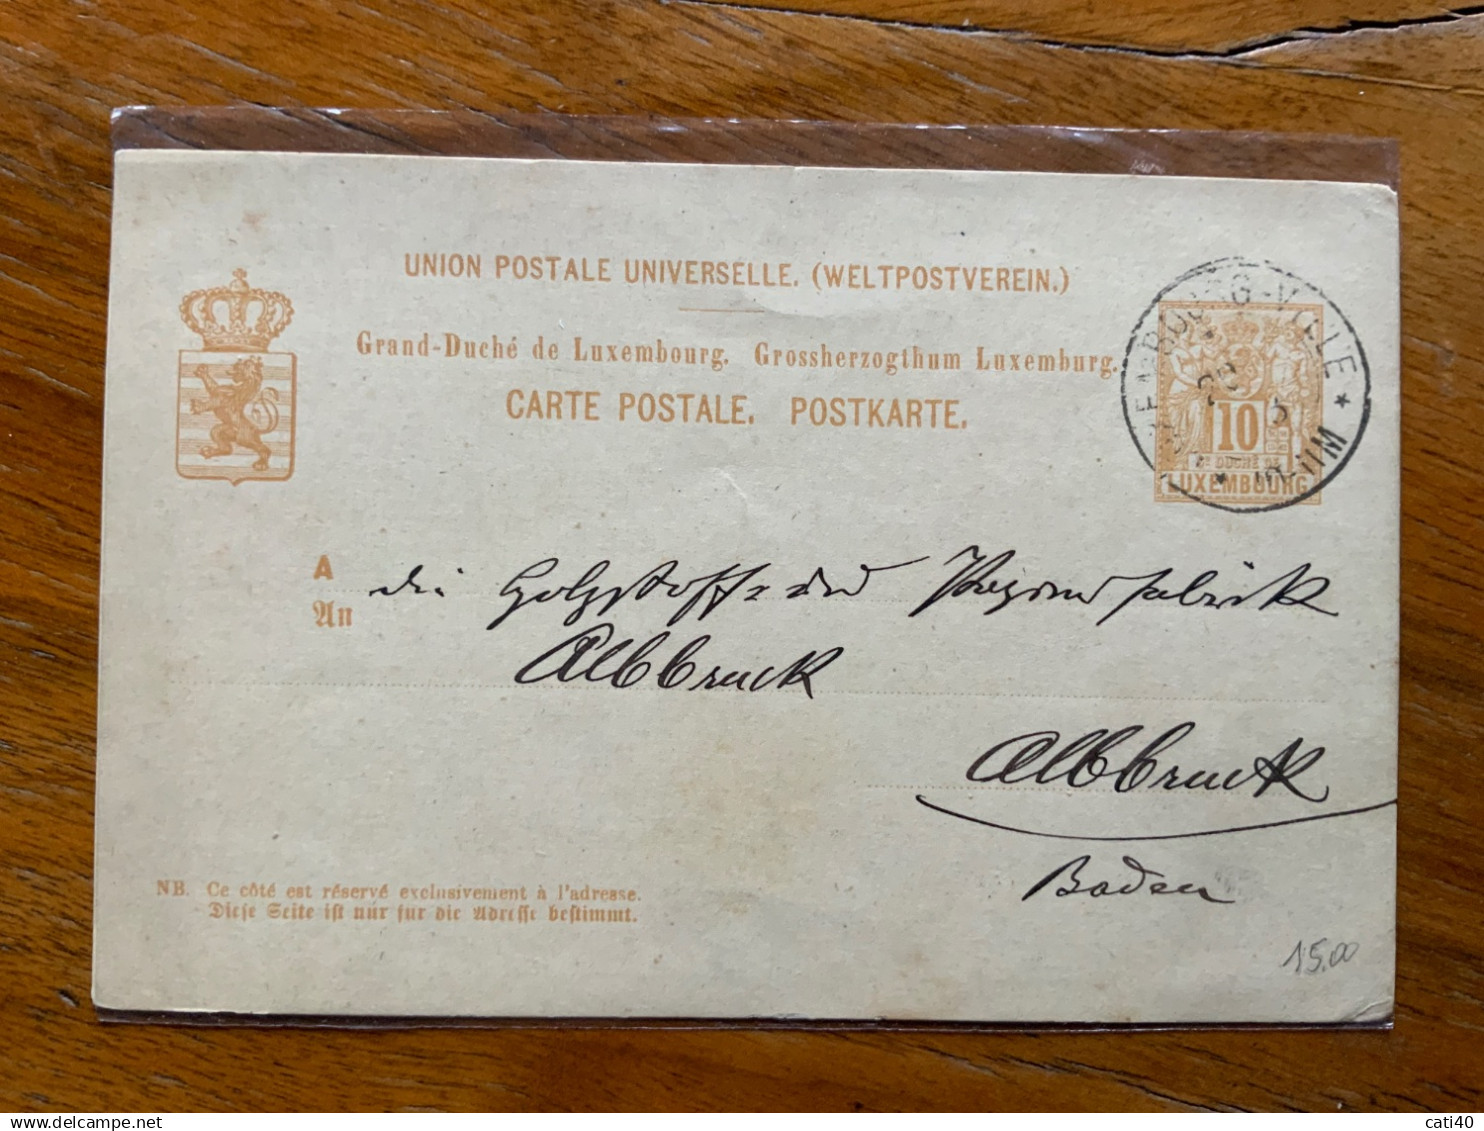 UNION POSTALE UNIVERSELLE. (WELTPOSTVEREIN.)
Grand-Duché de Luxembourg. Grossherzogthum Luxemburg.
CARTE POSTALE. POSTKARTE.
LUXEMBOURG-VILLE
10
Gd DUCHÉ DE
LUXEMBOURG
A
An
die Holzstoff- und Papierfabrik
Albbruck
Albbruck
Baden
NB. Ce côté est réservé exclusivement à l'adresse.
Diese Seite ist nur für die Adresse bestimmt.
15.00
cati40